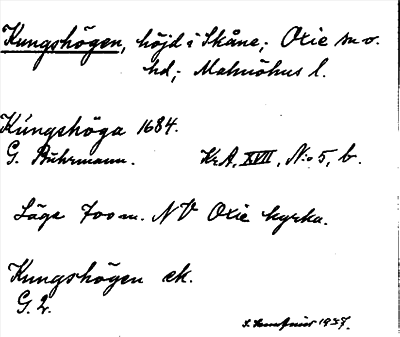 Kungshögen, höjd i Skåne; Oxie sn o.
hd; Malmöhus l.
Kúngshöga 1684.
G. Buhrmann. KrA, XVII, N:o 5, b.
Läge 700 m. NV Oxie kyrka.
Kungshögen ek.
G. 2.
1937.